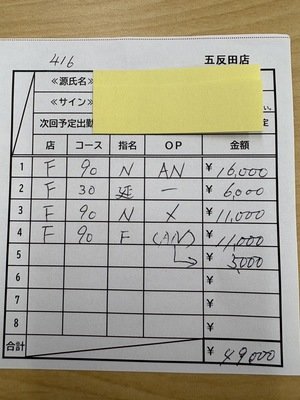 416 五反田店
≪源氏名≫
≪サイン≫
次回予定出勤 定
店 コース 指名 OP 金額
1 F 90 N AN ¥16,000
2 F 30 延 — ¥6,000
3 F 90 N × ¥11,000
4 F 90 F (AN) ¥11,000
5 ¥5,000
6 ¥
7 ¥
8 ¥
合計 ¥49,000